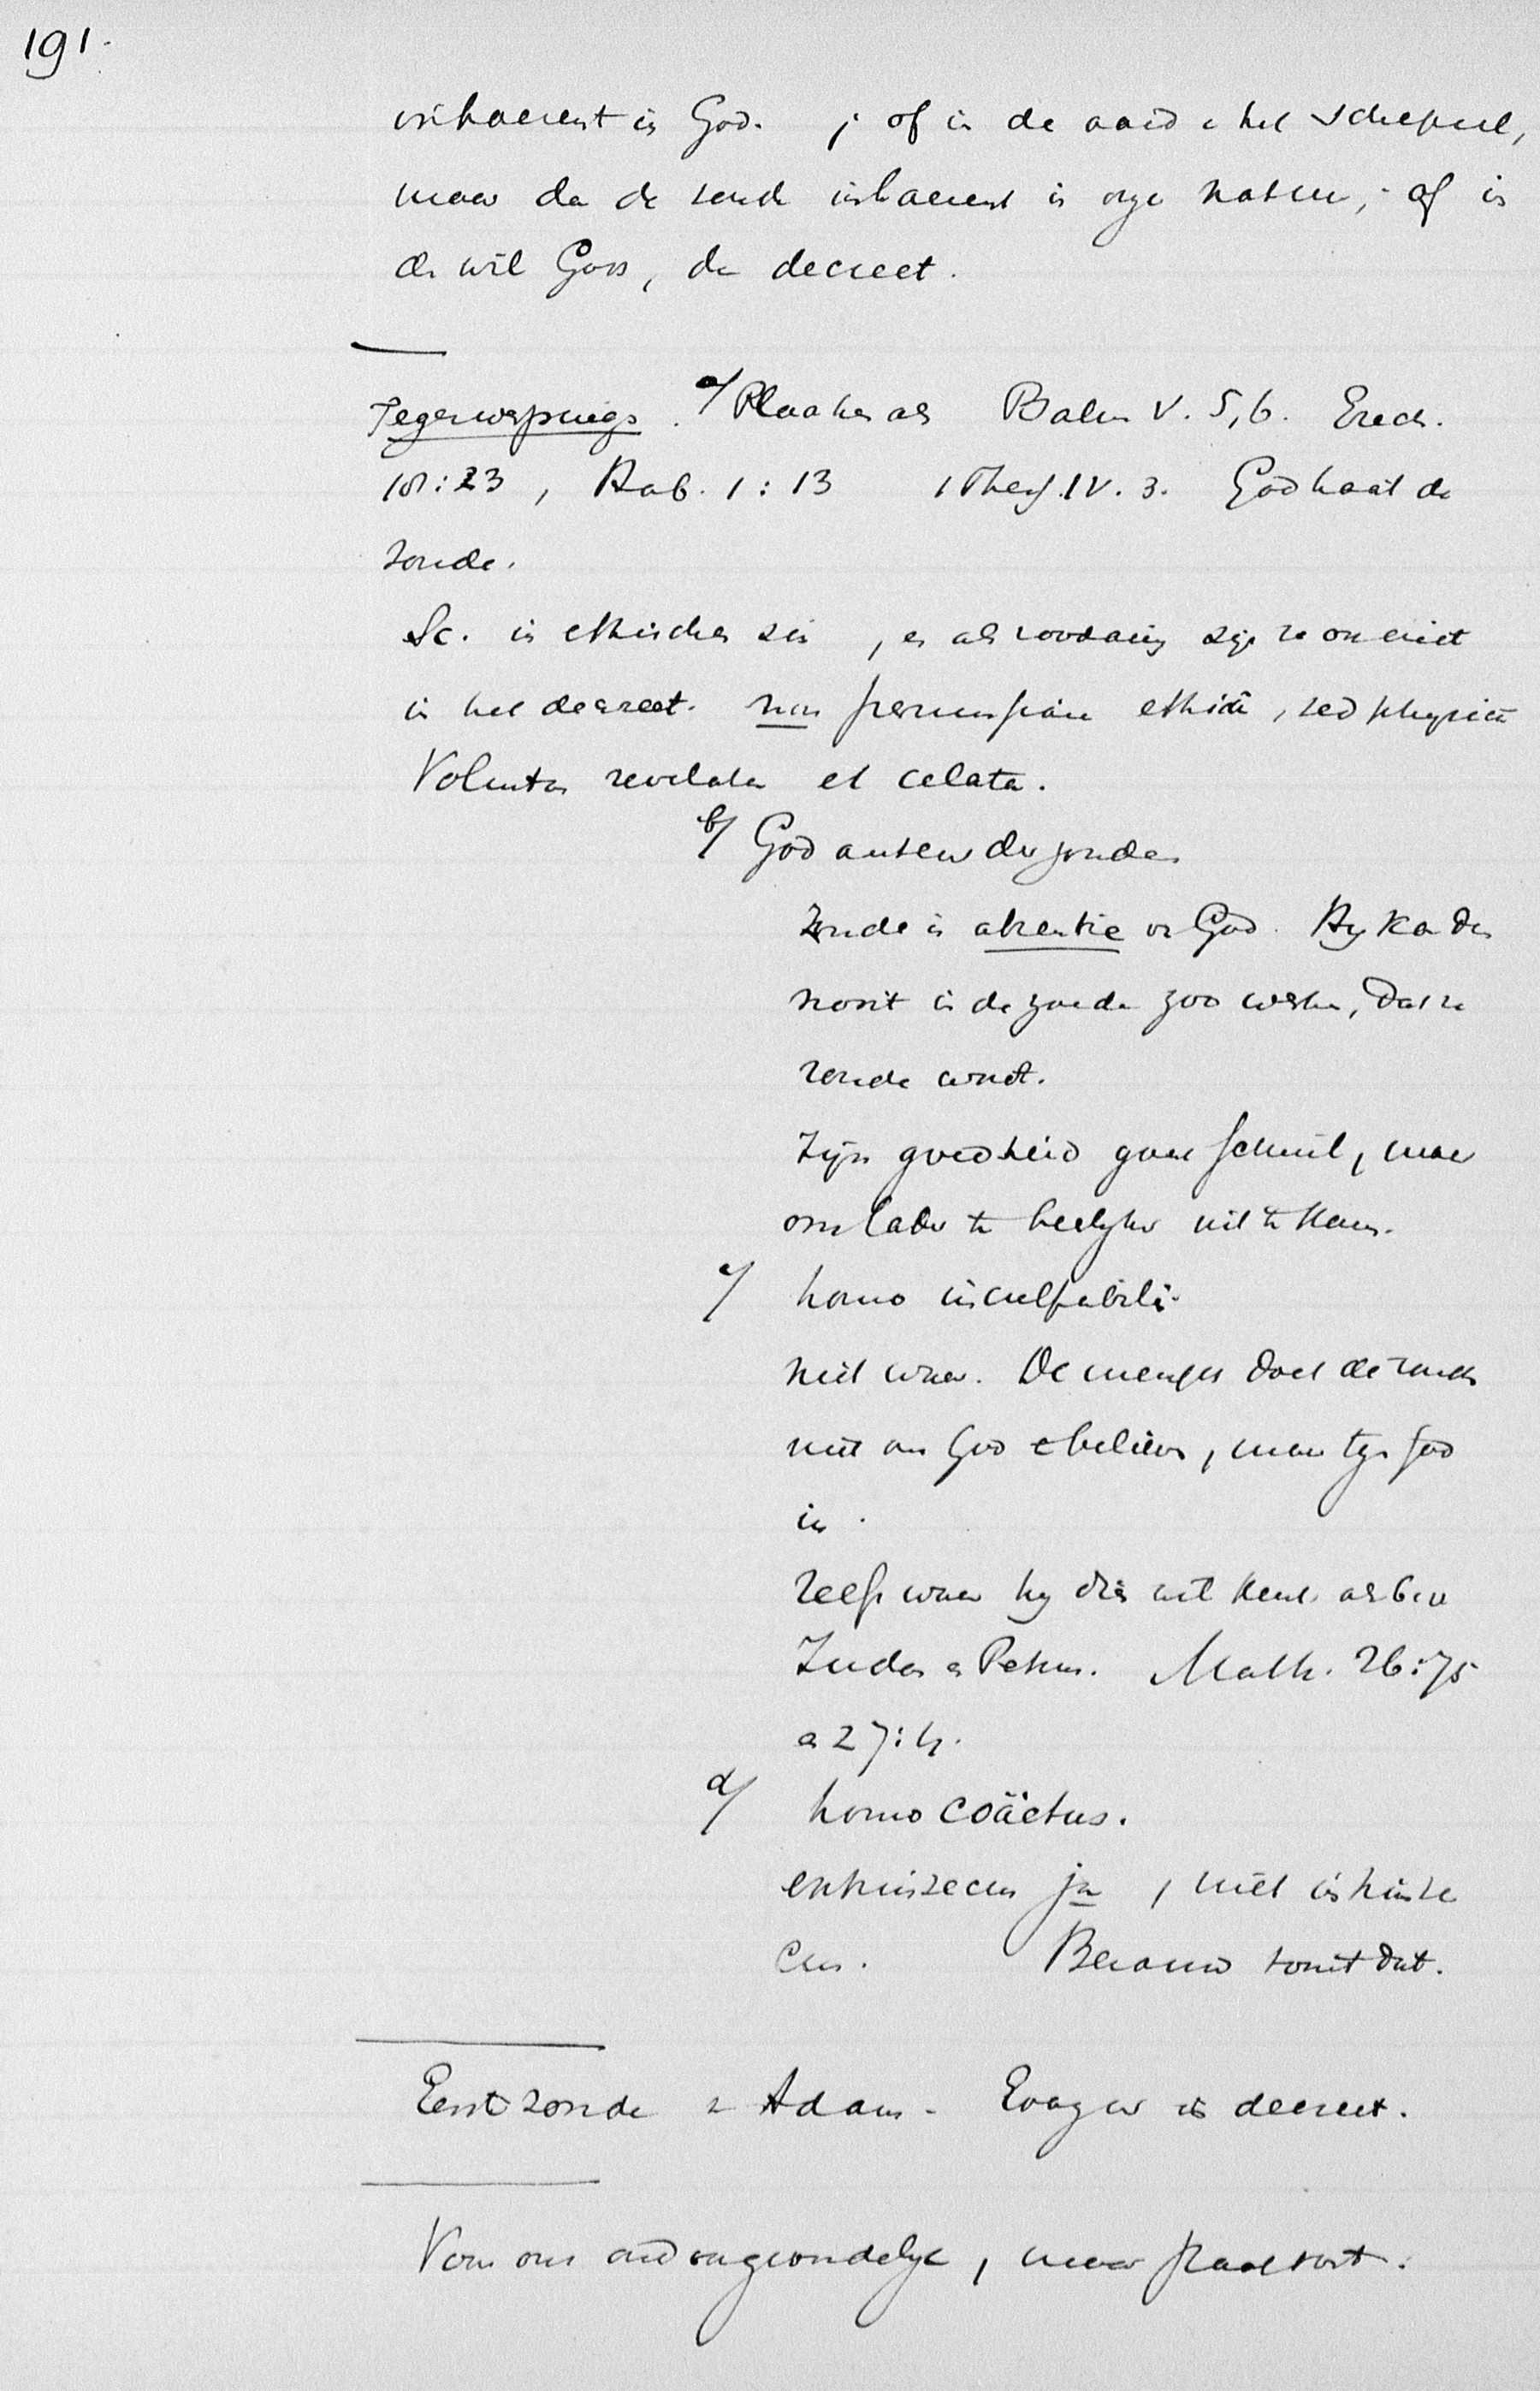 191.
inhaerent in God. ; of in de aard v het schepsel,
maar dan de zonde inhaerent in onze natuur; of in
de wil Gods, de decreet.
Tegenwerpings. a/ Plaatsen als Psalm V. 5,6. Ezech.
18:23, Hab. 1:13 1 Thess. IV. 3. God haat de
zonde.
Sc. in ethischen zin, en als zoodanig zijn ze ook niet
in het decreet. non permissione ethicâ, sed physicâ
Voluntas revelata et celata.
b/ God auteur der zonde
Zonde is absentie v God. Hij kan dus
nooit in de zonde zoo werken, dat ze
zonde wordt.
Zijn goedheid gaat schuil, maar
om later te heerlijker uit te komen.
c/ homo inculpabilis.
niet waar. De mensch doet de zonde
niet om God te believen, maar tegen God
in.
Zelfs waar hij dien wil kent. als bv
Judas en Petrus. Matth. 26:75
en 27:4.
d/ homo coäctus.
extrinsecus ja, niet intrinse
cus. Berouw toont dat.
Eerste zonde v Adam. Evenzeer in decreet.
Voor ons ondoorgrondelijk, maar staat vast.